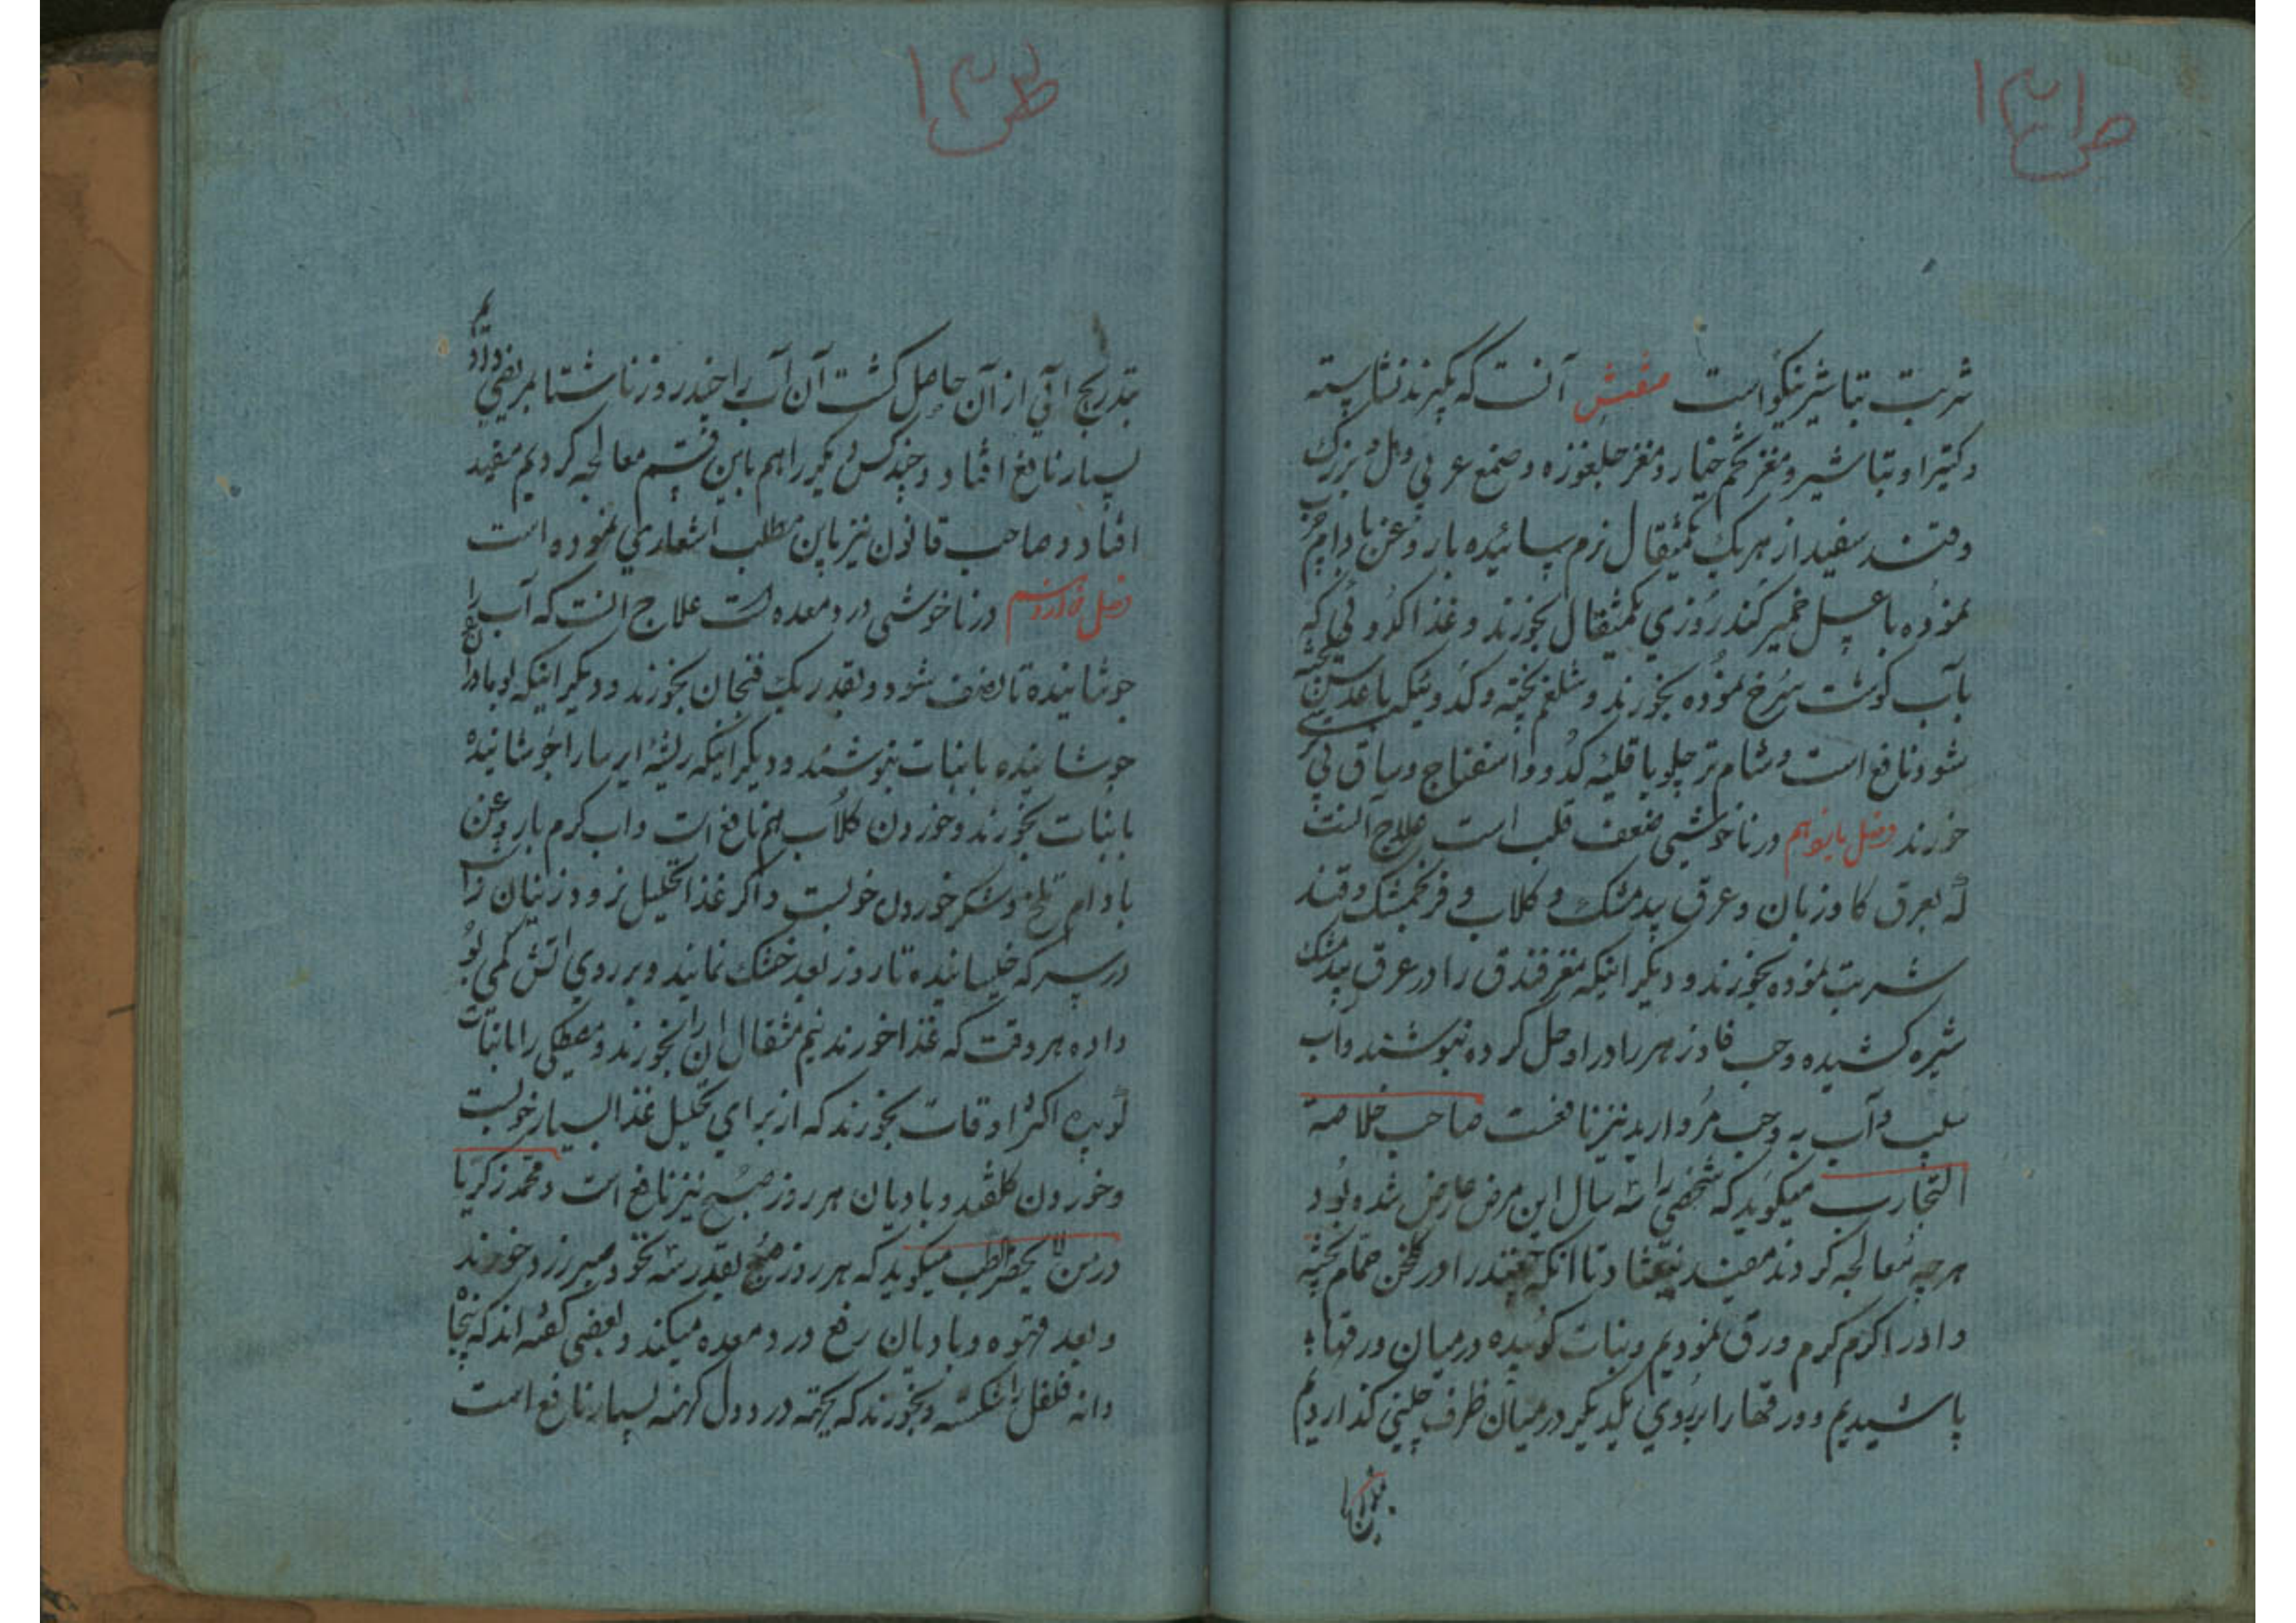 ص۱۳۱
شربت تباشیر نیکو است ششم آنست که بگیرند نشاسته
و کتیرا و تباشیر و مغز تخم خیار و مغز جلغوزه و صمغ عربی و هل بزرک
و قند سفید از هریک یکمثقال نرم سائیده با روغن بادام چرب
نموده با عسل خمیر کنند روزی یکمثقال بخورند و غذا اکر
بآب کوشت سرخ نموده بخورند و شلغم پخته و کدو نیکه با عدس پخته
شود نافع است و شام تر چلو با قلیه کدو و اسفناج و سماق
خورند فصل یازدهم در ناخوشی ضعف قلب است علاج آنست
که بعرق کاوزبان و عرق بیدمشک و کلاب و فرنجمشک و قند
شربت نموده بخورند و دیکر اینکه مغز فندق را در عرق بیدمشک
شیره کشیده و حب فادزهر را در او حل کرده بنوشند و آب
سیب و آب به و حب مروارید نیز نافعست صاحب خلاصة
التجارب میکوید که شخصی را سه سال این مرض عارض شده بود
هرچه معالجه کردند مفید نیفتاد تا انکه چغندر را در کلخن حمام پخته
و ادرا کرم کرم ورق نمودیم و نبات کوبیده درمیان ورقها
پاشیدیم و ورقها را بروی یکدیکر درمیان ظرف چینی کذاردیم
ص۱۳۲
بتدریج آبی از آن حاصل کشت آن آب را چند روز ناشتا بمریض دادیم
بسیار نافع افتاد و چند کس دیکر را هم باین قسم معالجه کردیم مفید
افتاد و صاحب قانون نیز باین مطلب اشعاری نموده است
فصل دوازدهم در ناخوشی درد معده است علاج انست که آب را
جوشانیده تا نصف شود و بقدر یک فنجان بخورند و دیکر اینکه
جوشانیده با نبات بنوشند و دیکر اینکه ریشه ایرسا را جوشانیده
با نبات بخورند و خوردن کلاب هم نافع است و اب کرم با روغن
بادام تلخ و شکر خوردن خوبست و اکر غذا تحلیل نرود زنیان را
در سرکه خیسانیده تا روز بعد خشک نمایند و بر روی اتش کمی بو
داده هر وقت که غذا خورند نیم مثقال ان را بخورند و مصطکی را با نبات
کوبیده اکثر اوقات بخورند که از برای تحلیل غذا بسیار خوبست
و خوردن کلقند و بادیان هر روز صبح نیز نافع است و محمد زکریا
در من لا یحضر الطبیب میکوید که هر روز صبح بقدر سه نخود صبر زرد خورند
و بعد قهوه و بادیان رفع درد معده میکند و بعضی کفته اند که پنجاه
دانه فلفل را شکسته و بخورند که بجهة درد دل کهنه بسیار نافع است